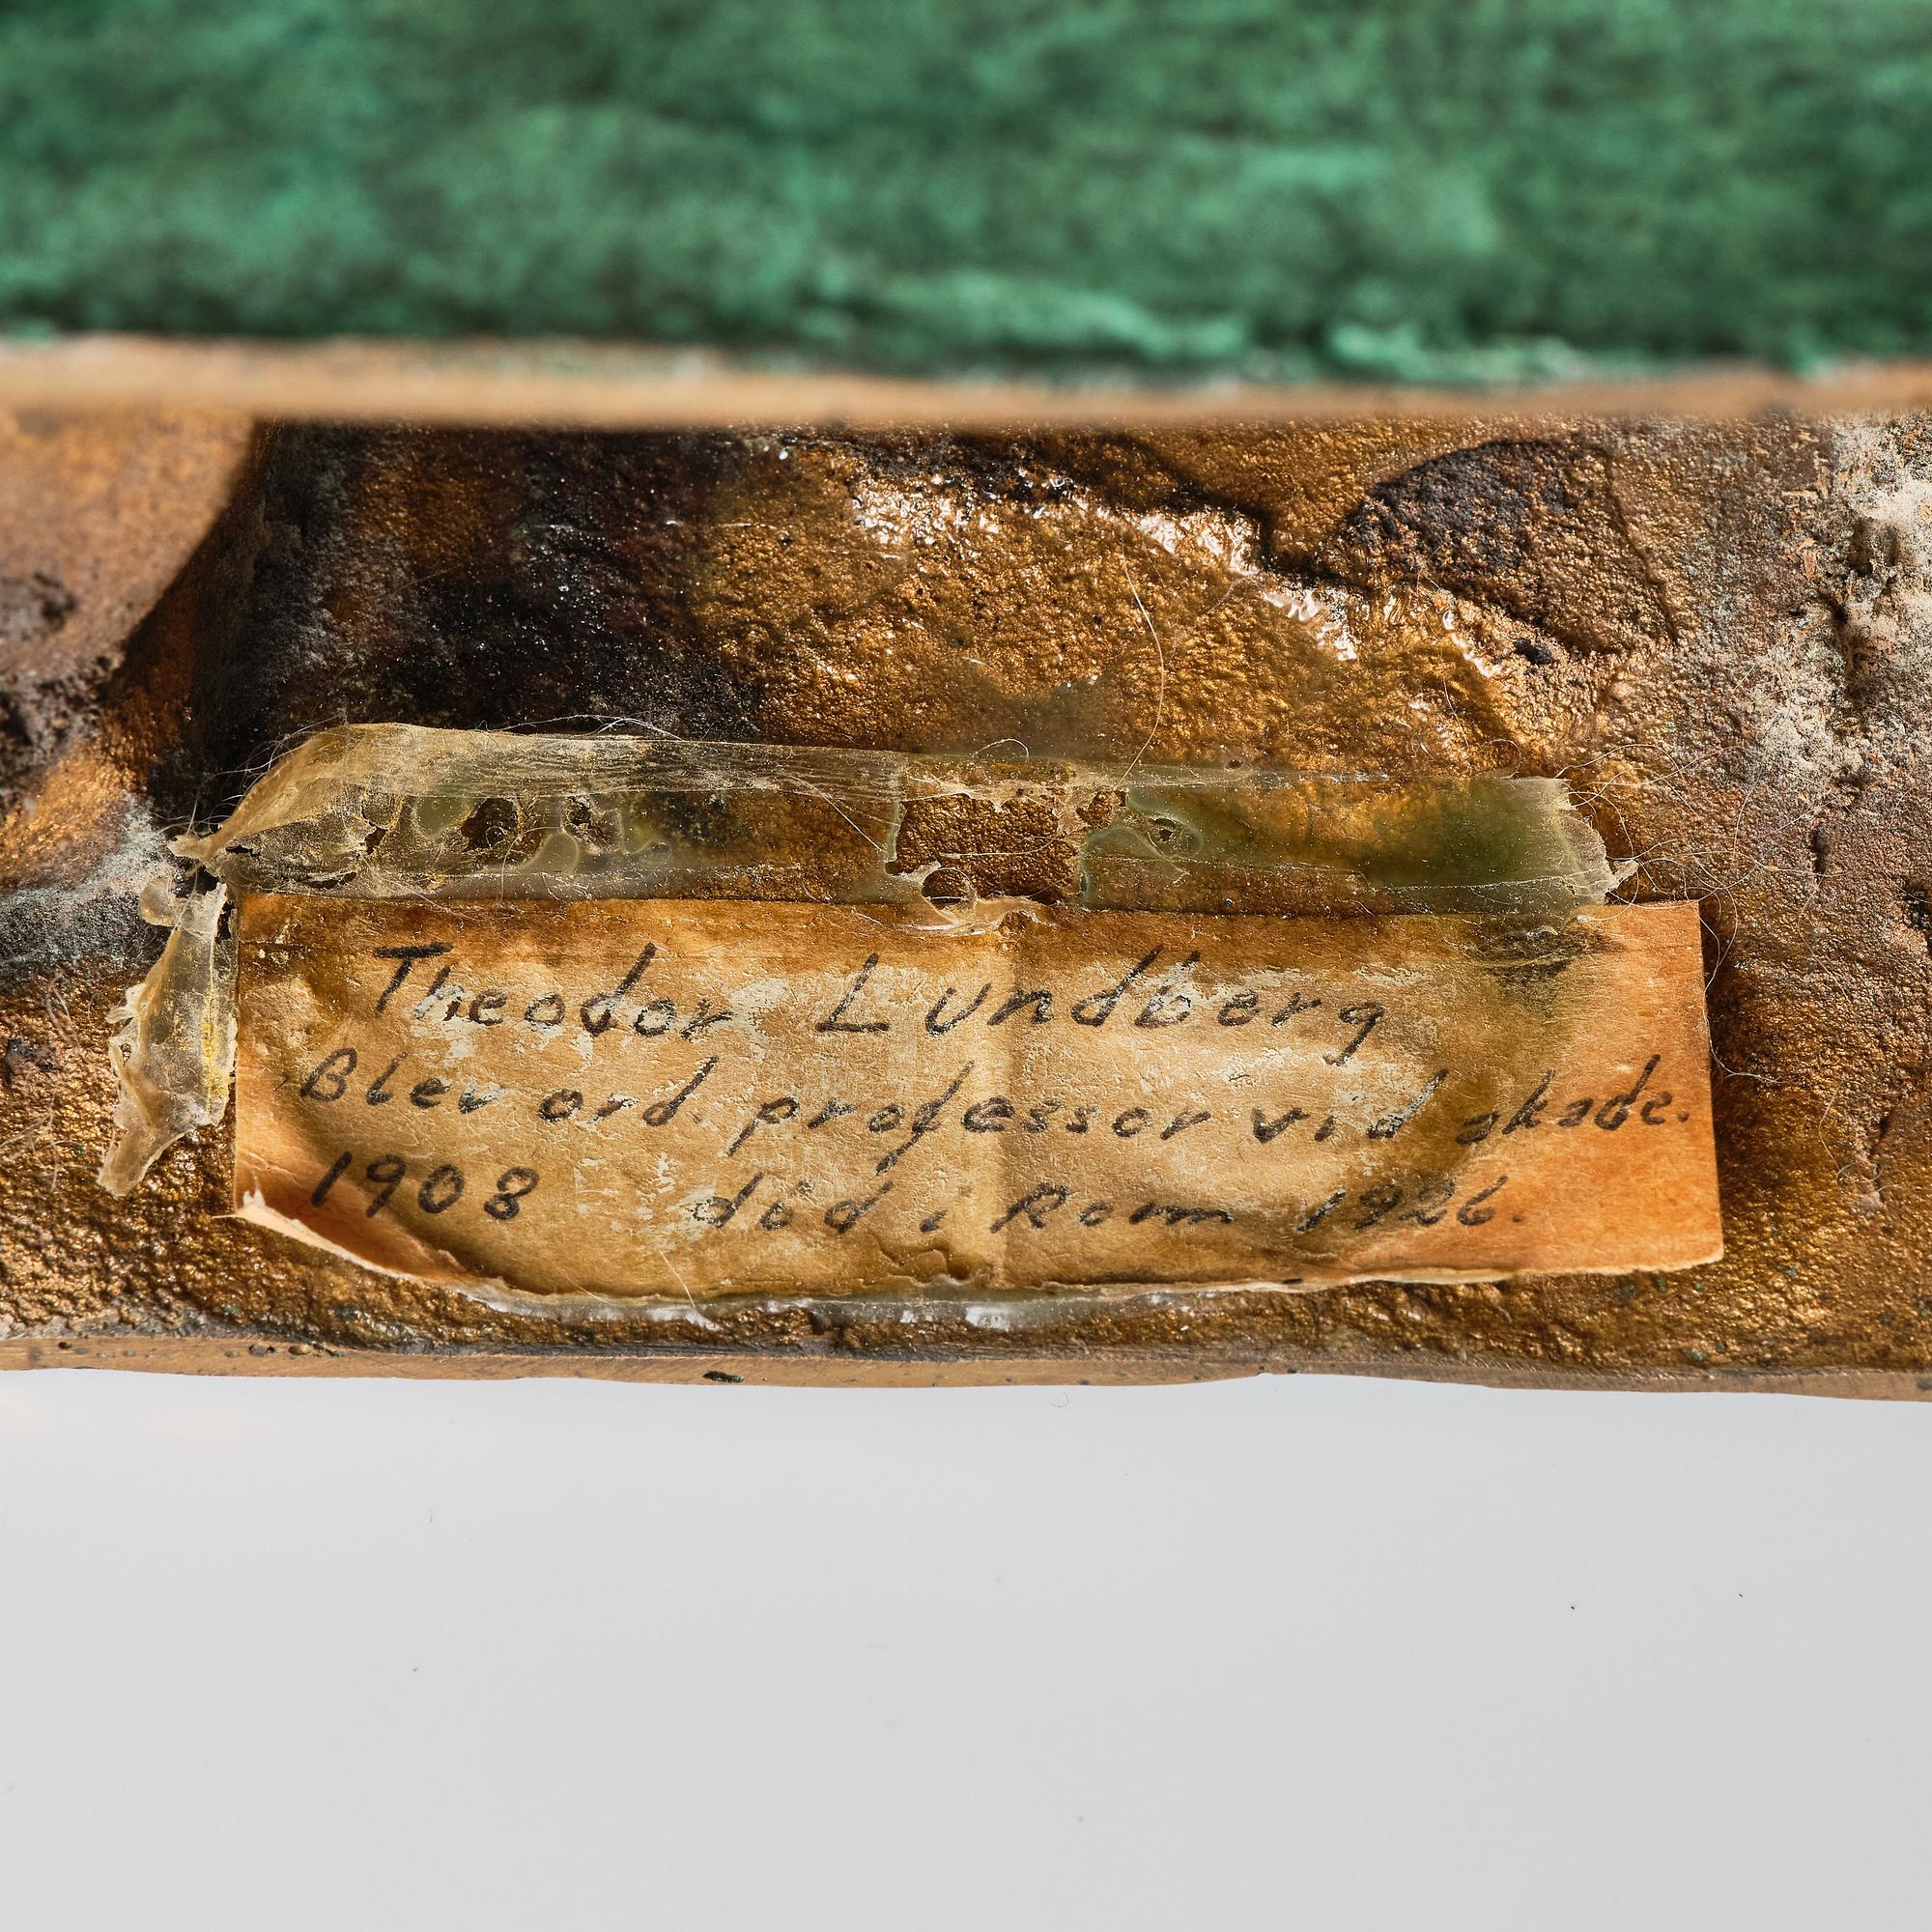 Theodor Lundberg
Blev ord. professor vid akade.
1908 död i Rom 1926.